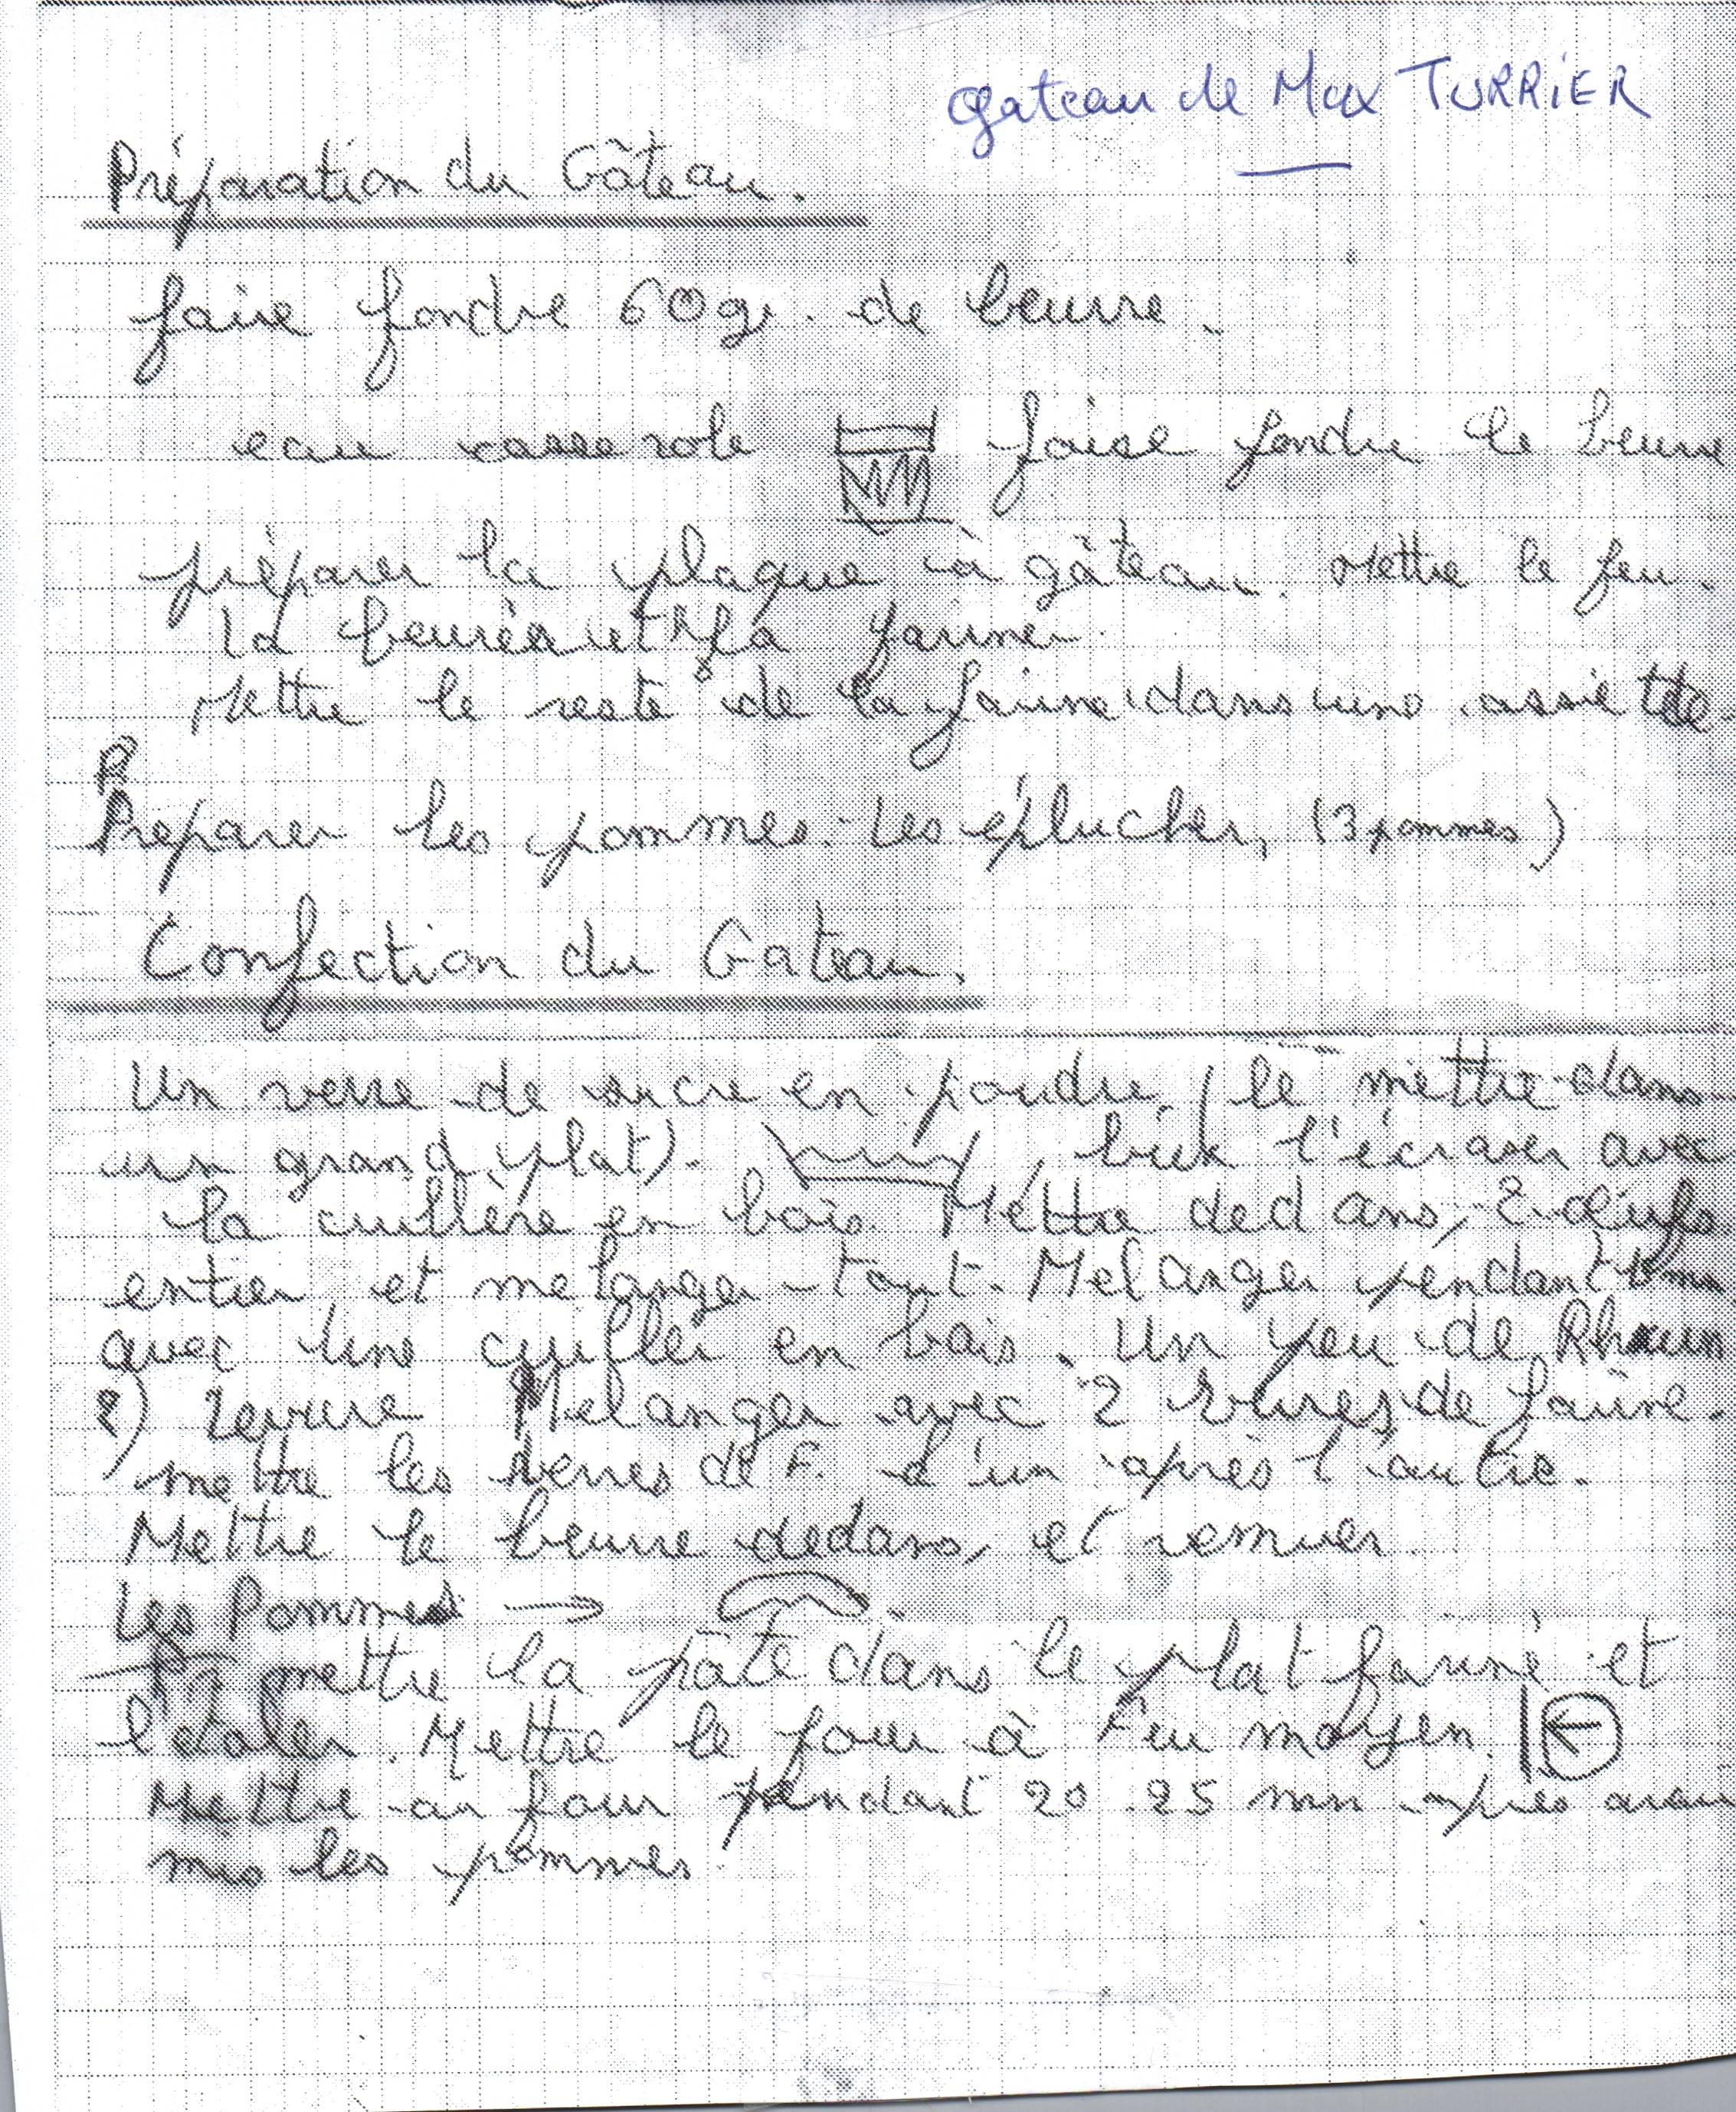 gateau de Max TURRIER
Préparation du Gâteau.
faire fondre 60gr. de beurre.
eau casserole faise fondre le beurre
préparer la plaque à gâteau. Mettre le feu.
la beurér et la fariner.
Mettre le reste de la farine dans une assiette
Preparer les pommes. Les éplucher, (3 pommes)
Confection du Gateau.
Un verre de sucre en poudre, (le mettre dans
un grand plat). , bien l'écraser avec
la cuillère en bois. Mettre dedans, 2 œufs
entier, et melanger tout. Melanger pendant
avec une en bois. Un peu de Rhum
2) levure Melanger avec 2 verres de farine.
mettre les verres de F. l'un après l'autre.
Mettre le beurre dedans, et remuer.
Les Pommes →
mettre la pâte dans le plat fariné et
l'étaler. Mettre le four à Feu moyen. ←
Mettre au four pendant 20.25 mn après avoir
mis les pommes.